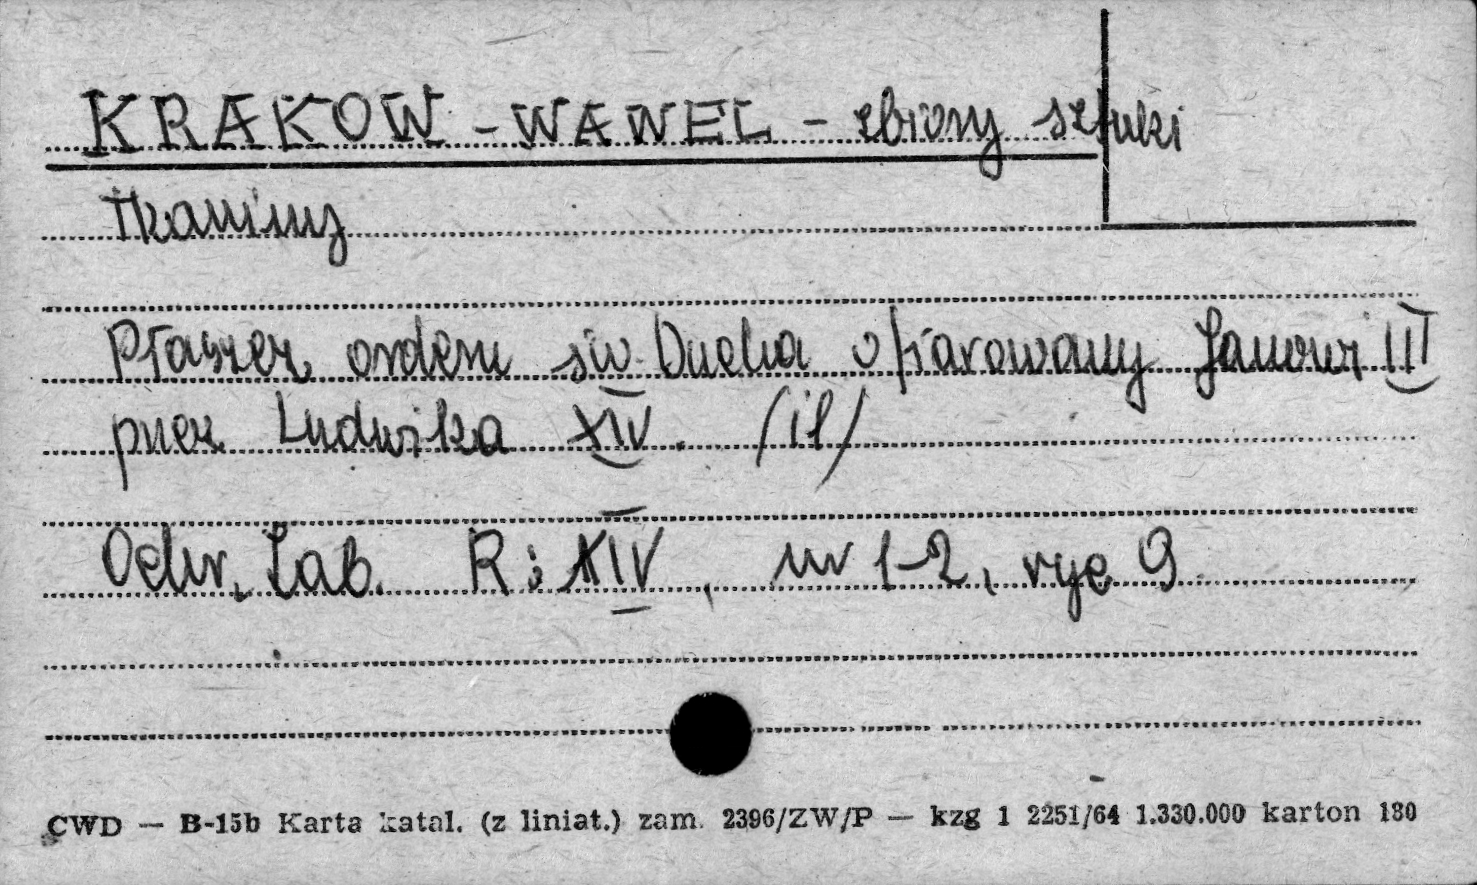 KRAKOW - WAWEL - zbiory sztuki
Tkaniny
Płaszcz orderu św. Ducha ofiarowany Janowi III
przez Ludwika XIV. /il/
Ochr. Zab. R: XIV, nr 1-2, ryc 9
CWD — B-15b Karta katal. (z liniat.) zam. 2396/ZW/P — kzg 1 2251/64 1.330.000 karton 180